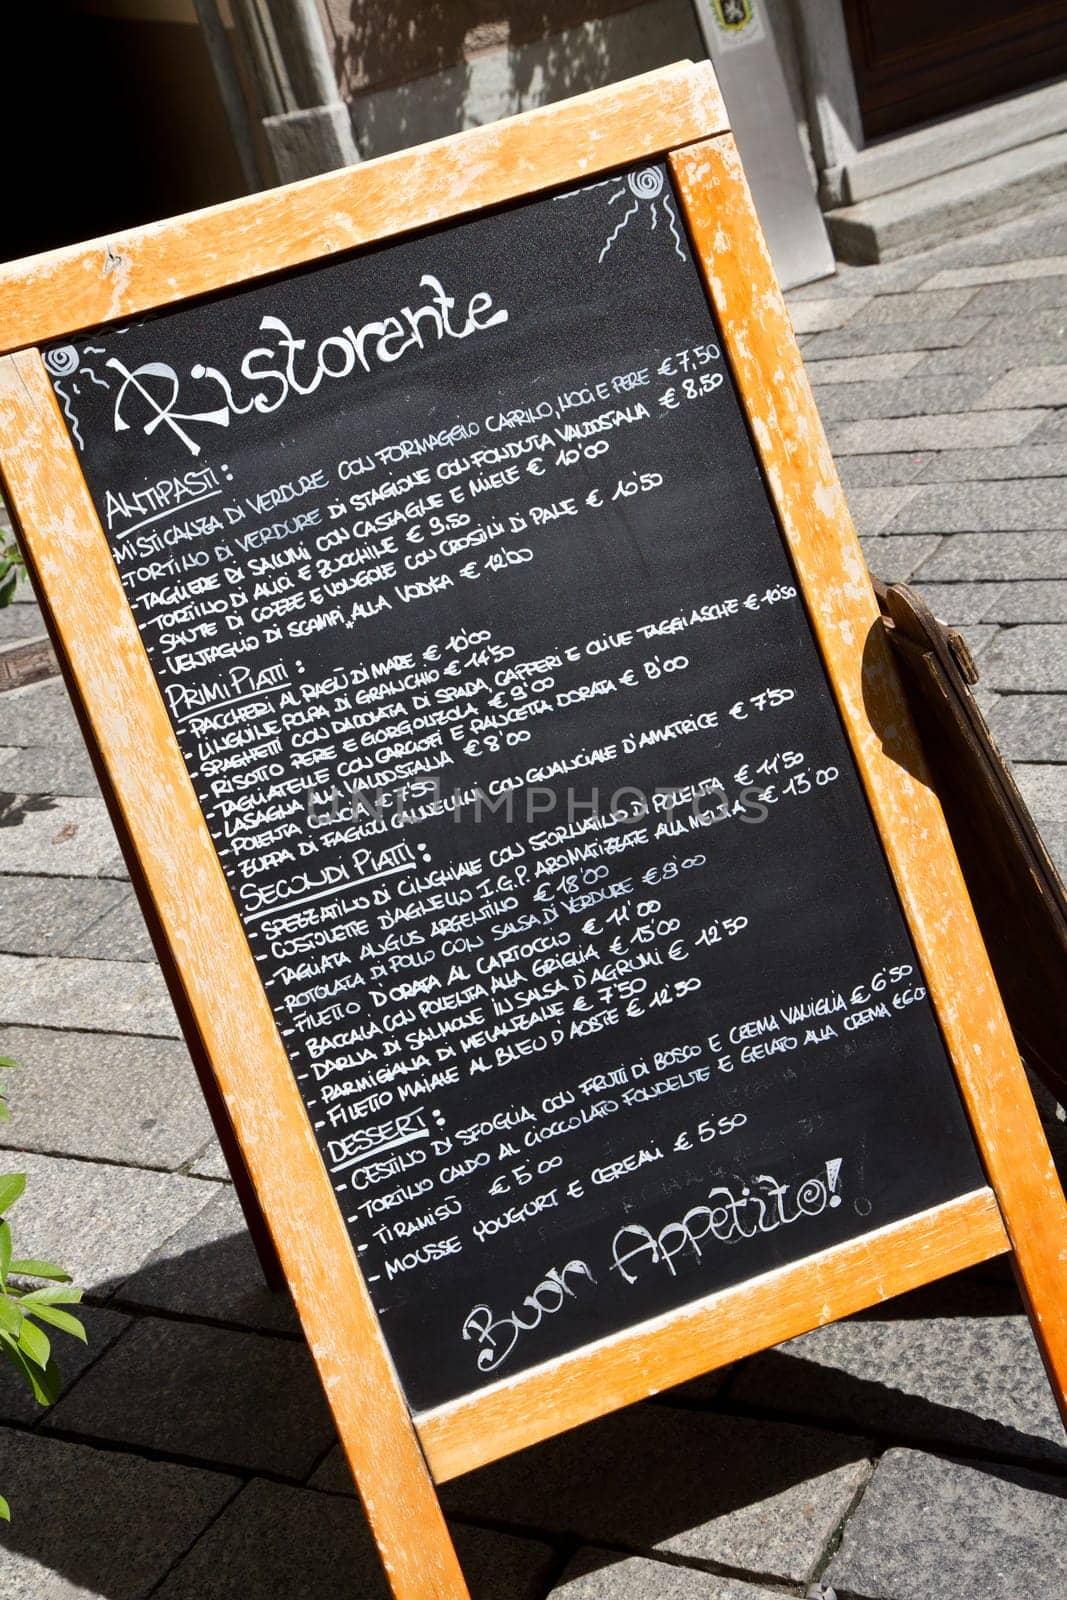 Ristorante
ANTIPASTI:
-MISTICANZA DI VERDURE CON FORMAGGIO CAPRINO, NOCI E PERE € 7,50
-TORTINO DI VERDURE DI STAGIONE CON FONDUTA VALDOSTANA € 8,50
-TAGLIERE DI SALUMI CON CASTAGNE E MIELE € 10'00
-TORTINO DI ALICI E ZUCCHINE € 9,50
- SAUTE' DI COZZE E VONGOLE CON CROSTINI DI PANE € 10'50
- VENTAGLIO DI SCAMPI* ALLA VODKA € 12'00
PRIMI PIATTI:
- PACCHERI AL RAGÙ DI MARE € 10'00
- LINGUINE POLPA DI GRANCHIO € 14'50
- SPAGHETTI CON DADOLATA DI SPADA, CAPPERI E OLIVE TAGGIASCHE € 10'50
- RISOTTO PERE E GORGONZOLA € 9'00
- TAGLIATELLE CON CARCIOFI E PANCETTA DORATA € 9'00
- LASAGNA ALLA VALDOSTANA € 8'00
- POLENTA CONCIA € 7'50
- ZUPPA DI FAGIOLI CANNELLINI CON GUANCIALE D'AMATRICE € 7'50
SECONDI PIATTI:
- SPEZZATINO DI CINGHIALE CON SFORMATINO DI POLENTA € 11'50
- COSTOLETTE D'AGNELLO I.G.P. AROMATIZZATE ALLA MENTA € 15'00
- TAGLIATA ANGUS ARGENTINO € 18'00
- ROTOLATA DI POLLO CON SALSA DI VERDURE € 9'00
- FILETTO D'ORATA AL CARTOCCIO € 11'00
- BACCALÀ CON POLENTA ALLA GRIGLIA € 15'00
- DARNA DI SALMONE IN SALSA D'AGRUMI € 12'50
- PARMIGIANA DI MELANZANE € 7'50
- FILETTO MAIALE AL BLEU D'AOSTE € 12'50
DESSERT:
- CESTINO DI SFOGLIA CON FRUTTI DI BOSCO E CREMA VANIGLIA € 6'50
- TORTINO CALDO AL CIOCCOLATO FONDENTE E GELATO ALLA CREMA € 6'00
- TIRAMISÙ € 5'00
- MOUSSE YOUGURT E CEREALI € 5'50
Buon Appetito!
UNLIMPHOTOS